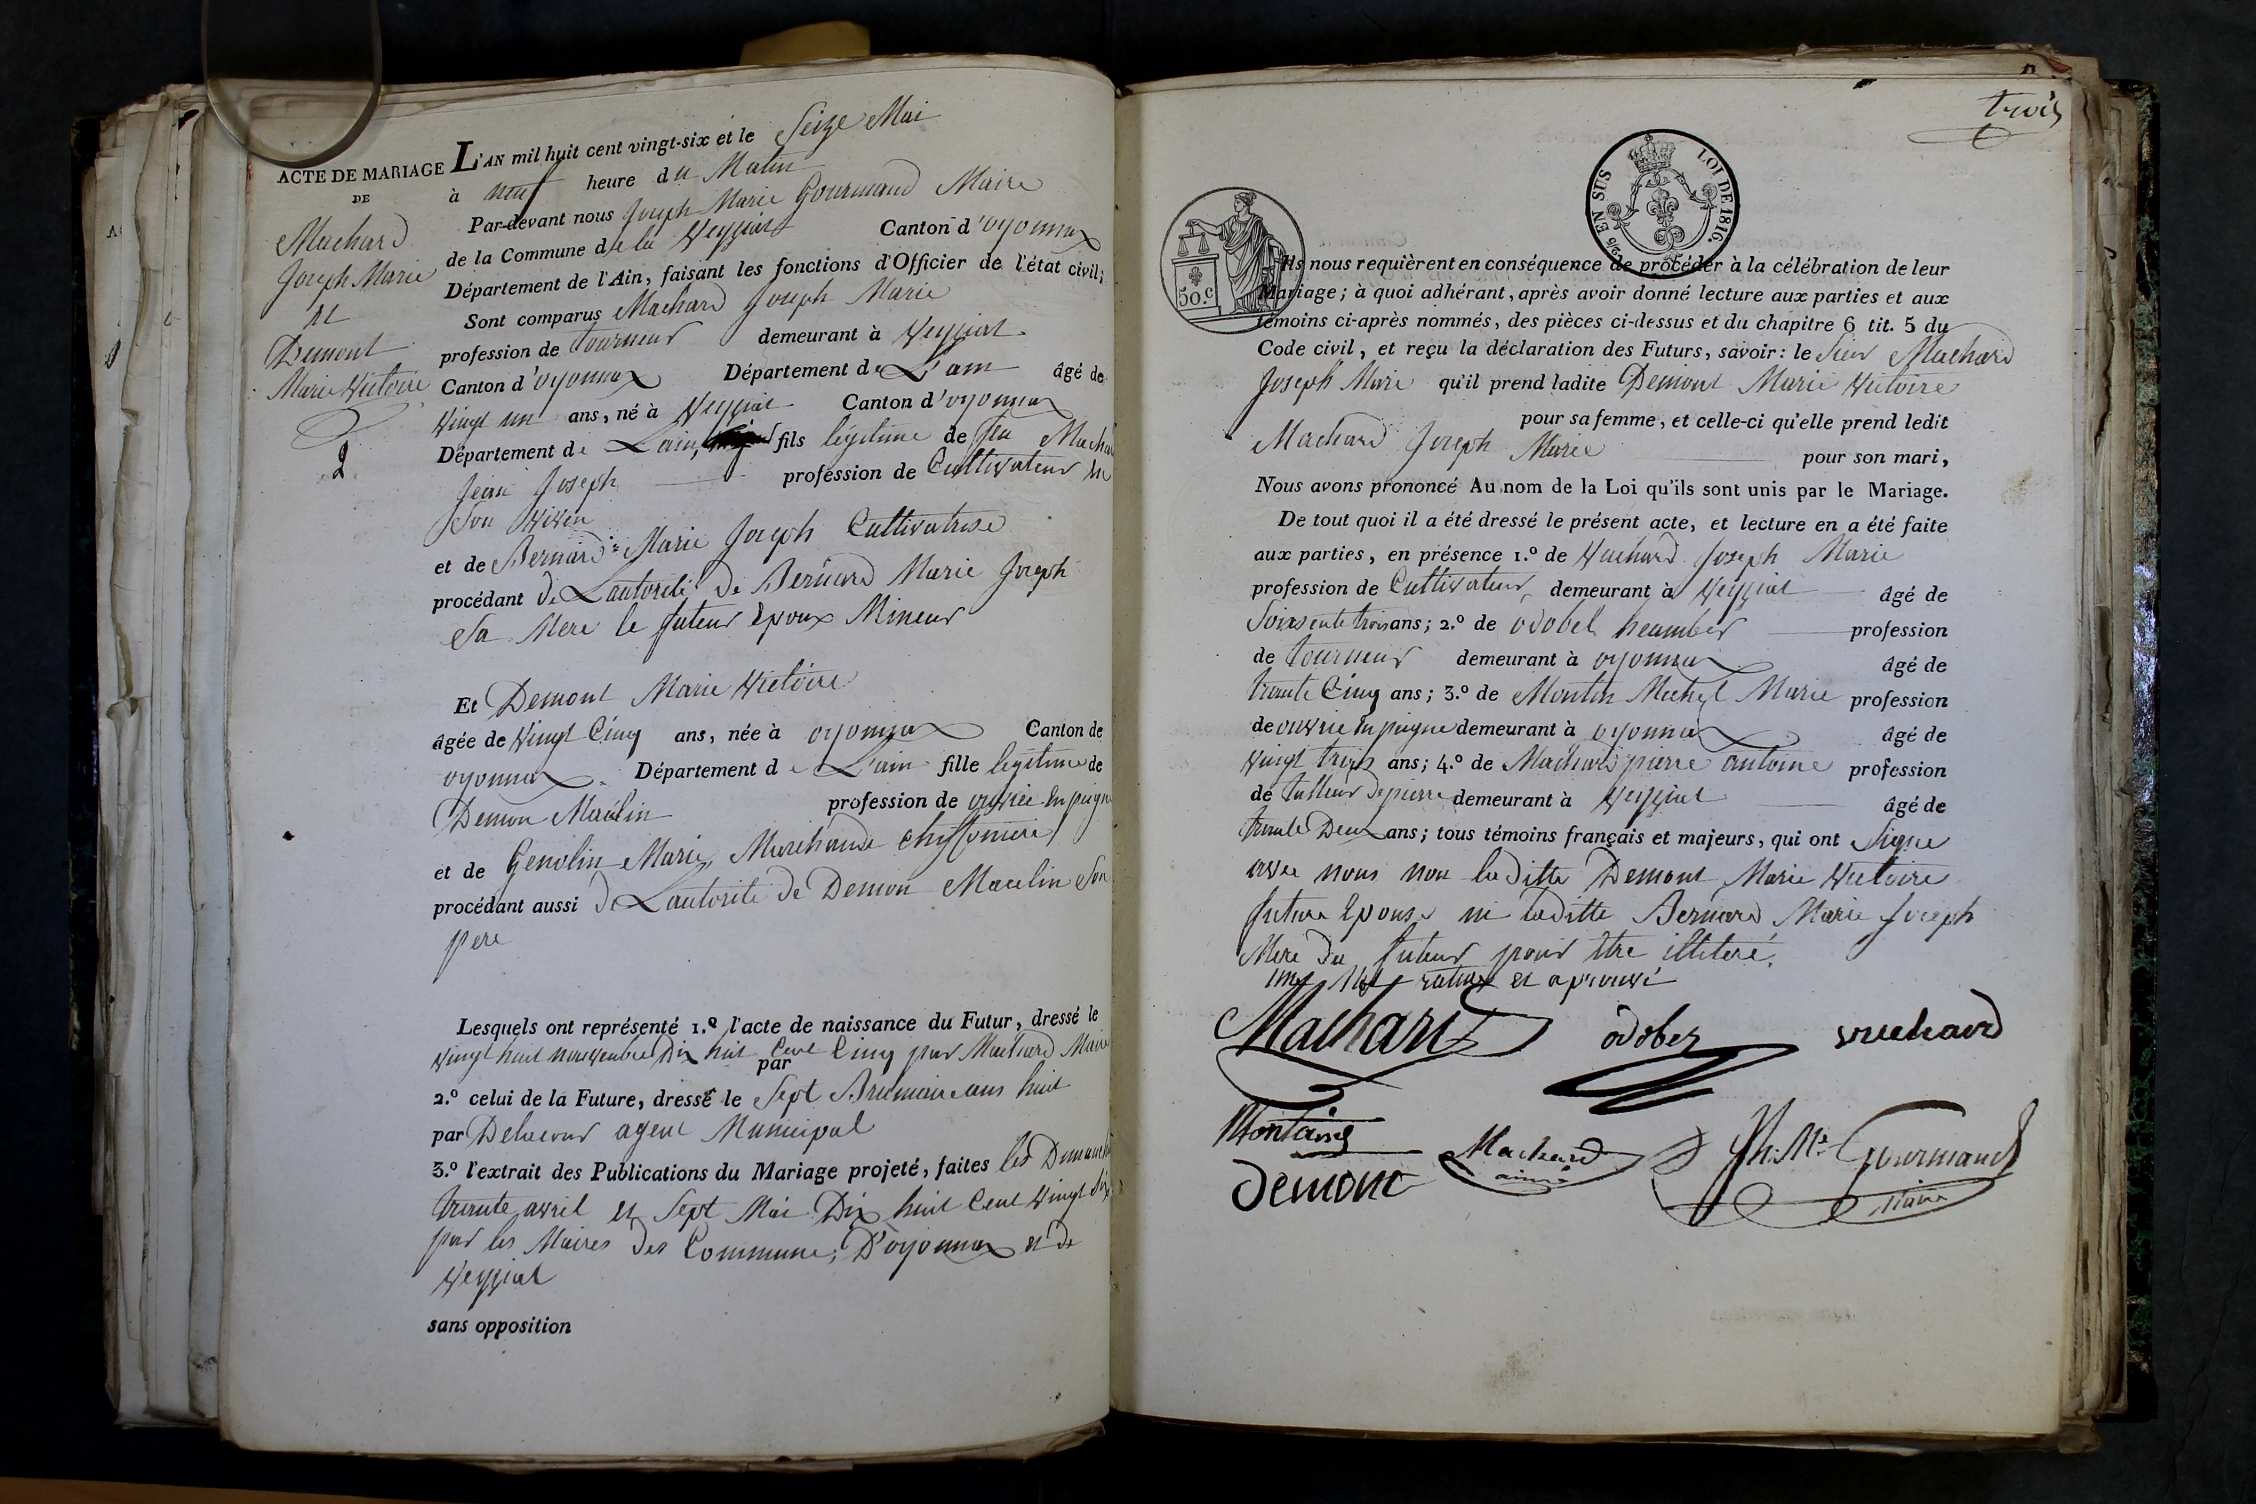 ACTE DE MARIAGE
DE
Machard
Joseph Marie
et
Demont
Marie Victoire
2
L'AN mil huit cent vingt-six et le Seize Mai
à neuf heure du Matin
Par-devant nous Joseph Marie Gourmand Maire
de la Commune de la Veyziat Canton d'oyonnax
Département de l'Ain, faisant les fonctions d'Officier de l'état civil;
Sont comparus Machard Joseph Marie
profession de tourneur demeurant à Veyziat
Canton d'oyonnax Département de L'ain âgé de
Vingt un ans, né à Veyziat Canton d'oyonnax
Département de Lain, fils légitime de feu Machard
Jean Joseph profession de Cultivateur en
Son Viven
et de Bernard Marie Joseph Cultivatrise
procédant de Lautorité de Bernard Marie Joseph
Sa Mere le futeur Epoux Mineur
Et Demont Marie Victoire
âgée de Vingt Cinq ans, née à oyonnax Canton de
oyonnax Département de L'ain fille legitime de
Demon Maulin profession de ouvrié en peigne
et de Genolin Marie Marchande chiffoniere
procédant aussi de Lautorité de Demon Maulin Son
pere
Lesquels ont représenté 1.º l'acte de naissance du Futur, dressé le
Vingt huit nouvembre Dix huit Cent Cinq par Machard Maire
par
2.º celui de la Future, dressé le Sept Brumaire ans huit
par Delacour agent Municipal
3.º l'extrait des Publications du Mariage projeté, faites les Dimanche
trente avril et Sept Mai Dix huit Cent Vingt Six
par les Maires des Commune, D'oyonnax et de
Veyziat
sans opposition
trois
5/10 EN SUS LOI DE 1816.
50.c
Ils nous requièrent en conséquence de procéder à la célébration de leur
Mariage; à quoi adhérant, après avoir donné lecture aux parties et aux
témoins ci-après nommés, des pièces ci-dessus et du chapitre 6 tit. 5 du
Code civil, et reçu la déclaration des Futurs, savoir: le Sieur Machard
Joseph Marie qu'il prend ladite Demont Marie Victoire
pour sa femme, et celle-ci qu'elle prend ledit
Machard Joseph Marie pour son mari,
Nous avons prononcé Au nom de la Loi qu'ils sont unis par le Mariage.
De tout quoi il a été dressé le présent acte, et lecture en a été faite
aux parties, en présence 1.º de Vuchard Joseph Marie
profession de Cultivateur, demeurant à Veyziat âgé de
Soixente trois ans; 2.º de odobel heamber profession
de tourneur demeurant à oyonnax âgé de
trante Cinq ans; 3.º de Montin Michel Marie profession
de ouvrie en peigne demeurant à oyonnax âgé de
Vingt treize ans; 4.º de Machard pierre antoine profession
de tailleur de pierre demeurant à Veyziat âgé de
trante Deux ans; tous témoins français et majeurs, qui ont Signe
avec nous non laditte Demont Marie Victoire
future Epouse ni laditte Bernard Marie Joseph
Mere du futeur pour être illiteré.
une rature et aprouvé
Machard odobez vuchard
Montaing
Machard ainé
Demont
Jh. Mie Gourmand
Maire